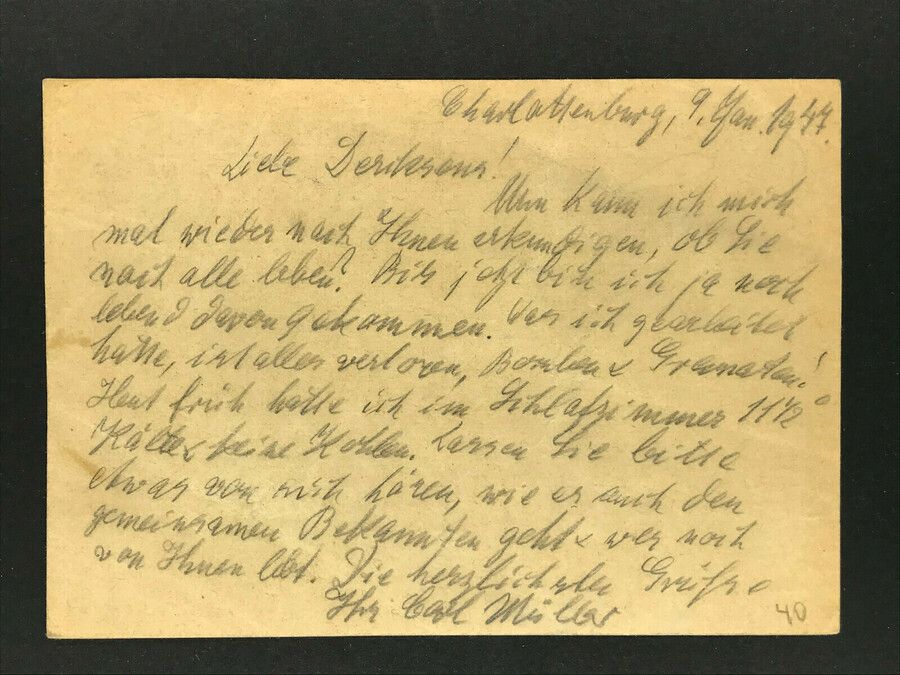 Charlottenburg, 9. Jan. 1947.
Liebe Deriksons!
Nun kann ich mich
mal wieder nach Ihnen erkundigen, ob Sie
noch alle leben? Bis jetzt bin ich ja noch
lebend davongekommen. Was ich gearbeitet
hatte, ist alles verloren, Bomben & Granaten!
Heut früh hatte ich im Schlafzimmer 11½°
Kälte & keine Kohlen. Lassen Sie bitte
etwas von sich hören, wie es auch den
gemeinsamen Bekannten geht & wer noch
von Ihnen lebt. Die herzlichsten Grüße
Ihr Carl Müller
40